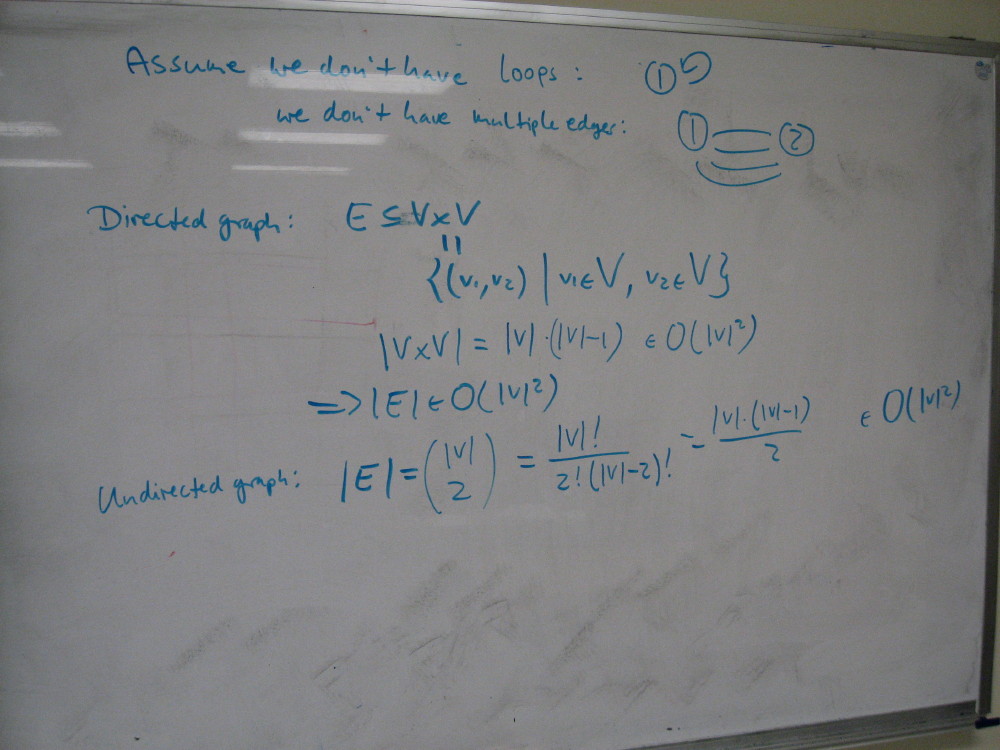 Assume we don't have loops: 1
we don't have multiple edges: 1 2
Directed graph: E ⊆ V×V
=
{(v1,v2) | v1∈V, v2∈V}
|V×V| = |V|·(|V|-1) ∈ O(|V|²)
=> |E| ∈ O(|V|²)
Undirected graph: |E| = (|V| 2) = |V|! / 2!(|V|-2)! = |V|·(|V|-1) / 2 ∈ O(|V|²)